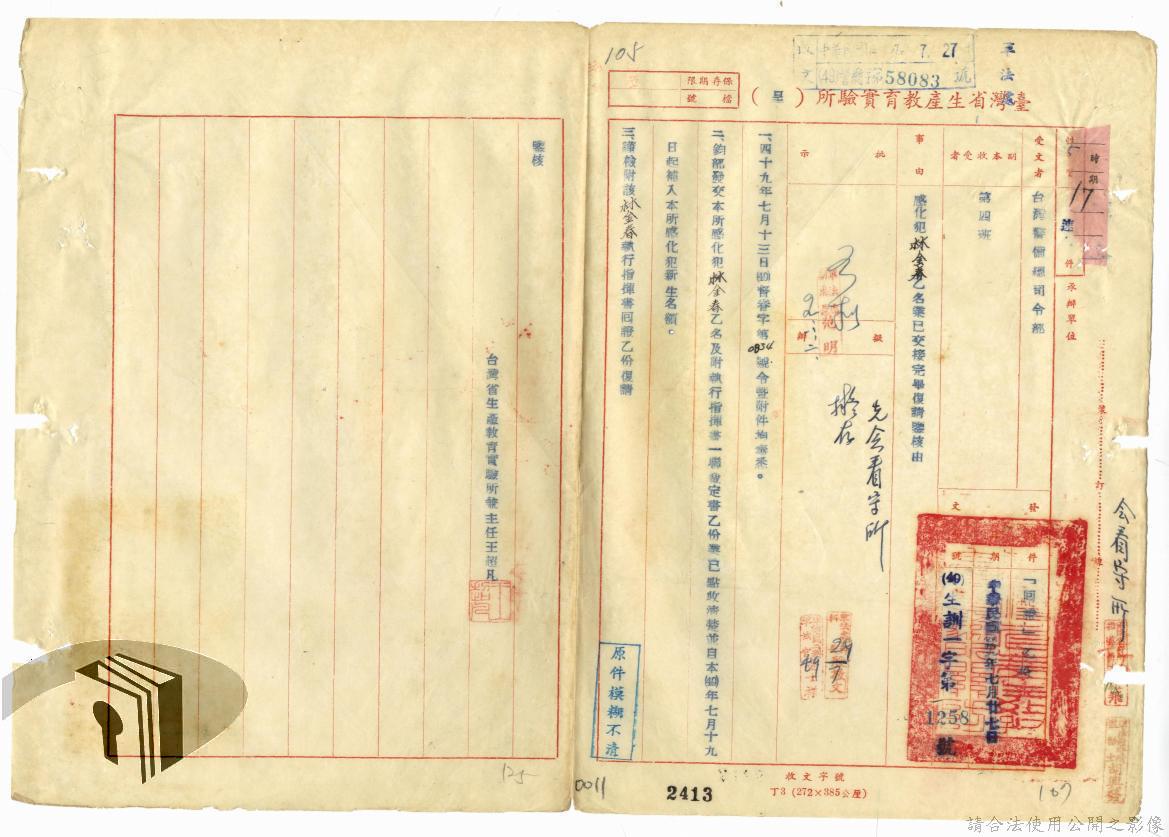 105
7.27
58083號
軍法處
保存期限
檔號
臺灣省生產教育實驗所（呈）
時期
17
速
件
受文者
台灣警備總司令部
承辦單位
副本收受者
第四班
事由
感化犯林金春乙名業已交接完畢復請鑒核由
批示
擬辦
先會看守所
擬存
一、四十九年七月十三日㈣督審字第0834號令暨附件均奉悉。
二、鈞部發交本所感化犯林金春乙名及附執行指揮書一聯裁定書乙份業已點收清楚並自本㈣年七月十九
日起補入本所感化犯新生名額。
三、謹檢附該林金春執行指揮書回證乙份復請
鑒核
台灣省生產教育實驗所兼主任王超凡
發文
件
「回證」乙份
期
中華民國年七月廿七日
號
(49)生訓一字第1258號
裝
訂
線
會看守所
原件模糊不清
收文字號
丁3（272×385公厘）
0011
2413
125
107
請合法使用公開之影像